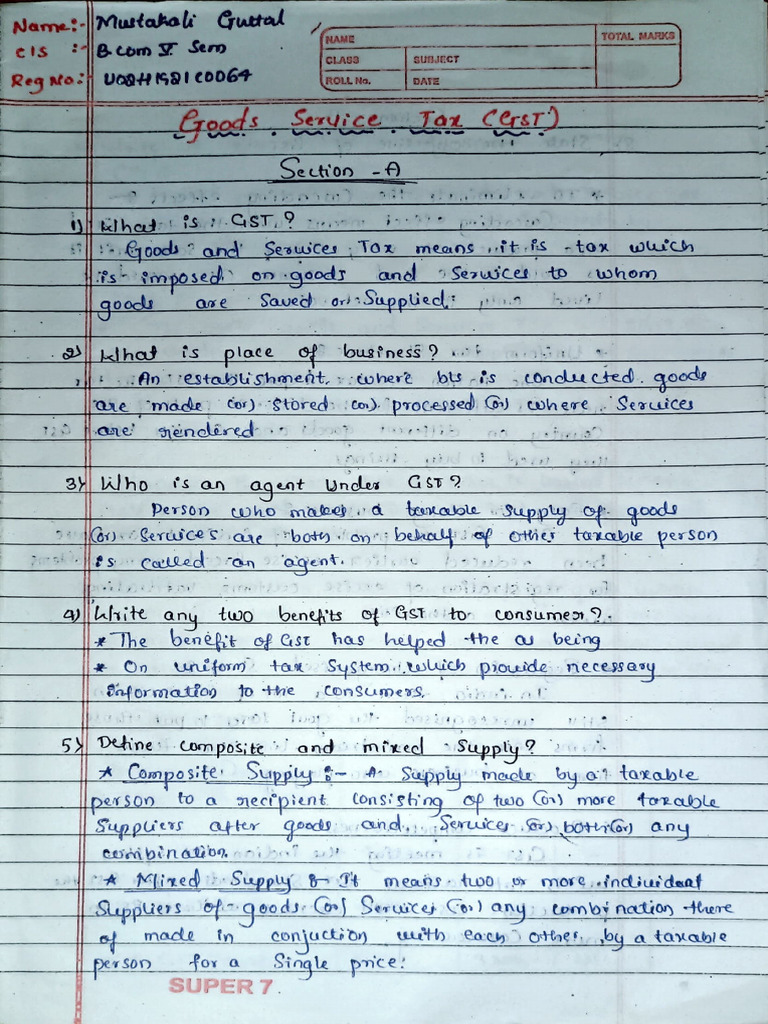 Name:- Mustakali Guttal
Cls :- B.com V Sem
Reg No:- U02H1921C0064
NAME
TOTAL MARKS
CLASS
SUBJECT
ROLL No.
DATE
Goods Service Tax (GST)
Section -A
1) What is GST?
Goods and Services Tax means it is tax which
is imposed on goods and Services to whom
goods are Saved or Supplied.
2) What is place of business?
An establishment where bls is conducted goods
are made (or) stored (or) processed (or) where Services
are rendered
3) Who is an agent under GST?
Person who makes a taxable supply of goods
(or) Services are both on behalf of other taxable person
is called an agent.
4) Write any two benefits of GST to consumer?
* The benefit of GST has helped the as being
* On uniform tax System which provide necessary
information to the consumers
5) Define composite and mixed Supply?
* Composite Supply :- A Supply made by a taxable
person to a recipient consisting of two (or) more taxable
Suppliers after goods and Services (or) both (or) any
combination.
* Mixed Supply :- It means two or more individeat
Suppliers of goods (or) Services (or) any combination there
of made in conjuction with each other by a taxable
person for a Single price.
SUPER 7